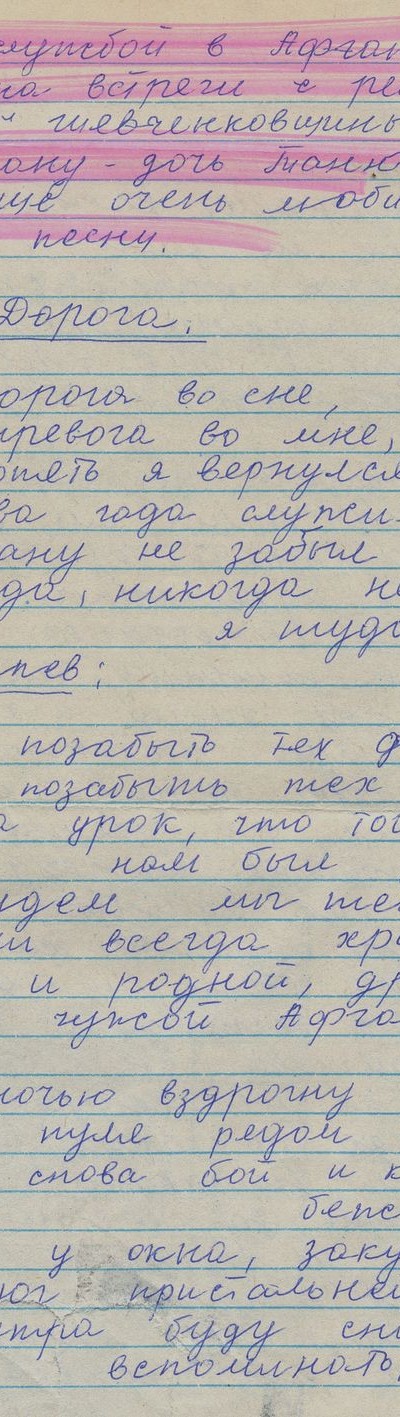 службой в Афган
на встречи с ре
й шевченковщины
ону - дочь Таню
ще очень люби
песню.
Дорога.
орога во сне,
тревога во мне,
опять я вернулся
ва года служи
ану не забыл
да, никогда не
я туда
пев:
позабыть тех ф
позабыть тех
а урок, что тог
нам был
йдем мы те
ии всегда хра
и родной, др
чужой Афга
ночью вздрогну
пуля рядом
снова бой и к
бенс
у окна, заку
ног пристальней
стра буду сн
вспоминать,